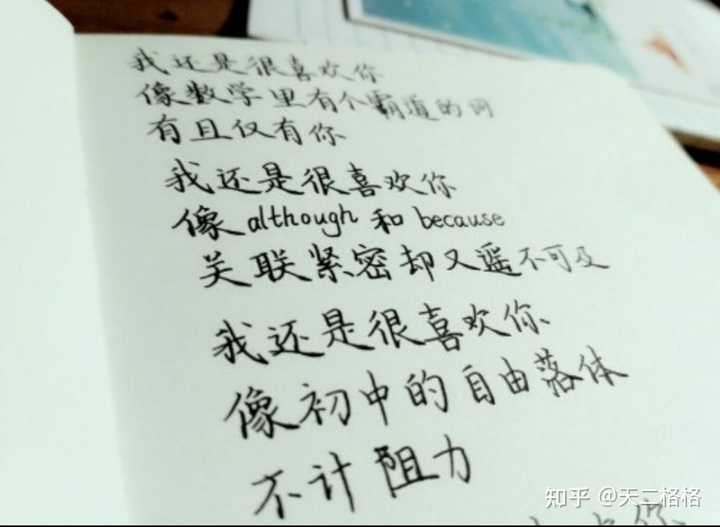 我还是很喜欢你
像数学里有个霸道的词
有且仅有你
我还是很喜欢你
像although和because
关联紧密却又遥不可及
我还是很喜欢你
像初中的自由落体
不计阻力
你
知乎 @天二格格